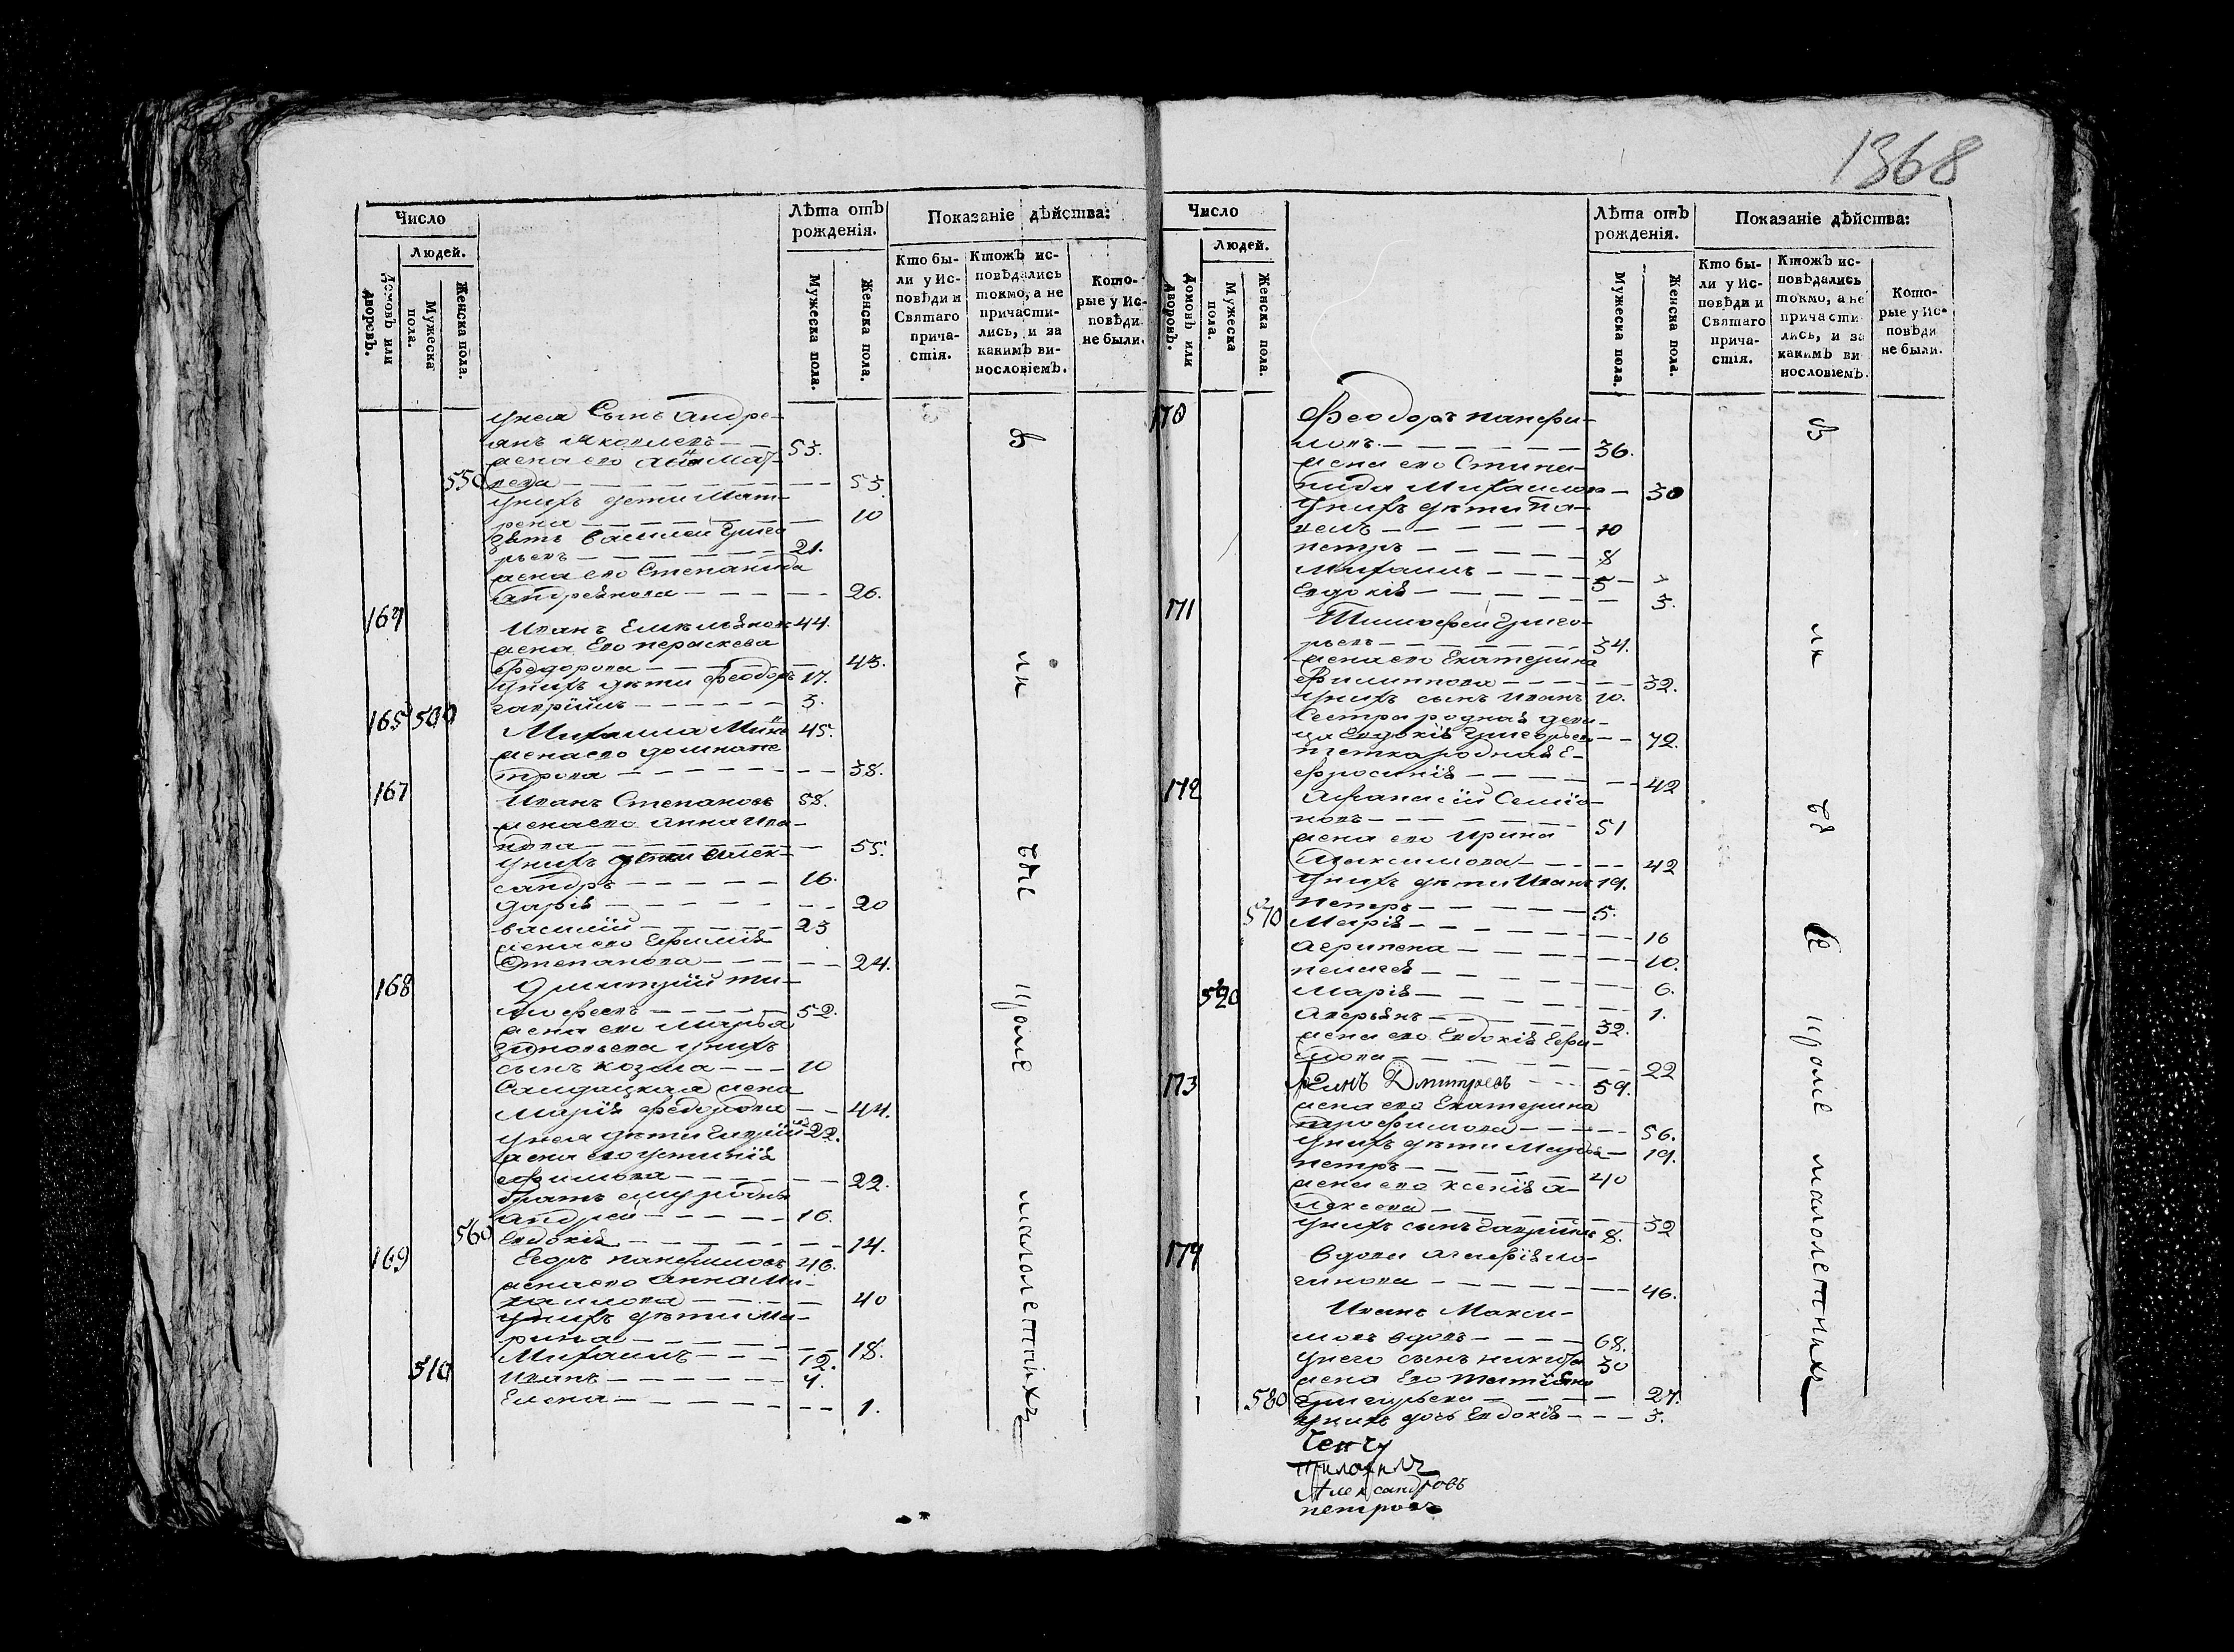 1368
Число
Людей.
Домовъ или дворовъ.
Мужеска пола.
Женска пола.
Лѣта отъ рожденія.
Мужеска пола.
Женска пола.
Показаніе дѣйства:
Кто бы-
ли у Ис-
повѣди и
Святаго
прича-
стія.
Ктожъ ис-
повѣдались
токмо, а не
причасти-
лись, и за
какимъ ви-
нословіемъ.
Кото-
рые у Ис-
повѣди
не были.
унея Сынъ Андре-
янъ Яковлевъ 53.
жена его
550 53.
унихъ дети Мат-
рена 10
зять василей Григо
рьевъ 21.
жена его Степанида
Андреянова 26.
164 Иванъ Емельянов 44.
жена Его пераскева
Федорова 43.
унихъ дѣти феодоръ 17.
гаврїилъ 3.
165 500 Михаила 45.
жена его домна пе
трова 38.
167 Иванъ Степановъ 58.
жена его анна Ива-
нова 55.
унихъ дети алек-
сандръ 16.
дарія 20
василий 23
жена его Ефимия
Степанова 24.
168 Дмитрїй ти-
мофеевъ 52.
жена его марфа
зиновьева унихъ
сынъ козма 10
Салдацкая жена
Марія федорова 44.
унея дѣти 22.
жена его устинїя
ефимова 22.
братъ ему родны
андрей 16.
560 Евдокія 14.
169 Егоръ панфиловъ 46.
жена его анна Ми-
хаилова 40
унихъ дѣти Ма-
рина 18.
Михаилъ 12.
510 Иванъ 4.
Елена 1.
малолетнихъ
Число
Людей.
Домовъ или дворовъ.
Мужеска пола.
Женска пола.
Лѣта отъ рожденія.
Мужеска пола.
Женска пола.
Показаніе дѣйства:
Кто бы-
ли у Ис-
повѣди и
Святаго
прича-
стія.
Ктожъ ис-
повѣдались
токмо, а не
причасти-
лись, и за
какимъ ви-
нословіемъ.
Кото-
рые у Ис-
повѣди
не были.
170 Феодоръ панфи-
ловъ 36.
жена его Степа-
нида Михаилов 30
унихъ дѣти Па-
велъ 10
петръ 8
Михаилъ 5
Евдокія 3.
171 Тимофей Григо-
рьевъ 34.
жена его Екатерина
Филиппова 32.
унихъ сынъ Иванъ 10.
Сестра родная деви-
ца Евдокія Григорьева 72.
тетка родная Е-
фросинїя 42
172 Афанасїй Семїо-
новъ 51
жена его Ирина
Максимова 42
унихъ дѣти Иванъ 19.
петръ 5.
570 Марія 16
агрипена 10.
пелагея 6.
520 Марія 1.
Аверьянъ 32.
жена его Евдокія Ефи-
мова 22
173 Дмитриевъ 59.
жена его Екатерина
трофимова 56.
унихъ дѣти Марфа 19.
петръ 40
жена его ксенія а-
лексеева 32
унихъ сынъ гаврїилъ 8.
174 вдова агафїя ло-
гинова 46.
Иванъ Макси-
мовъ вдовъ 68.
унего сынъ никита 30
жена Его татїана
580 Григорьева 27.
унихъ дочь Евдокїя 3.
малолетнихъ
Александровъ
петровъ